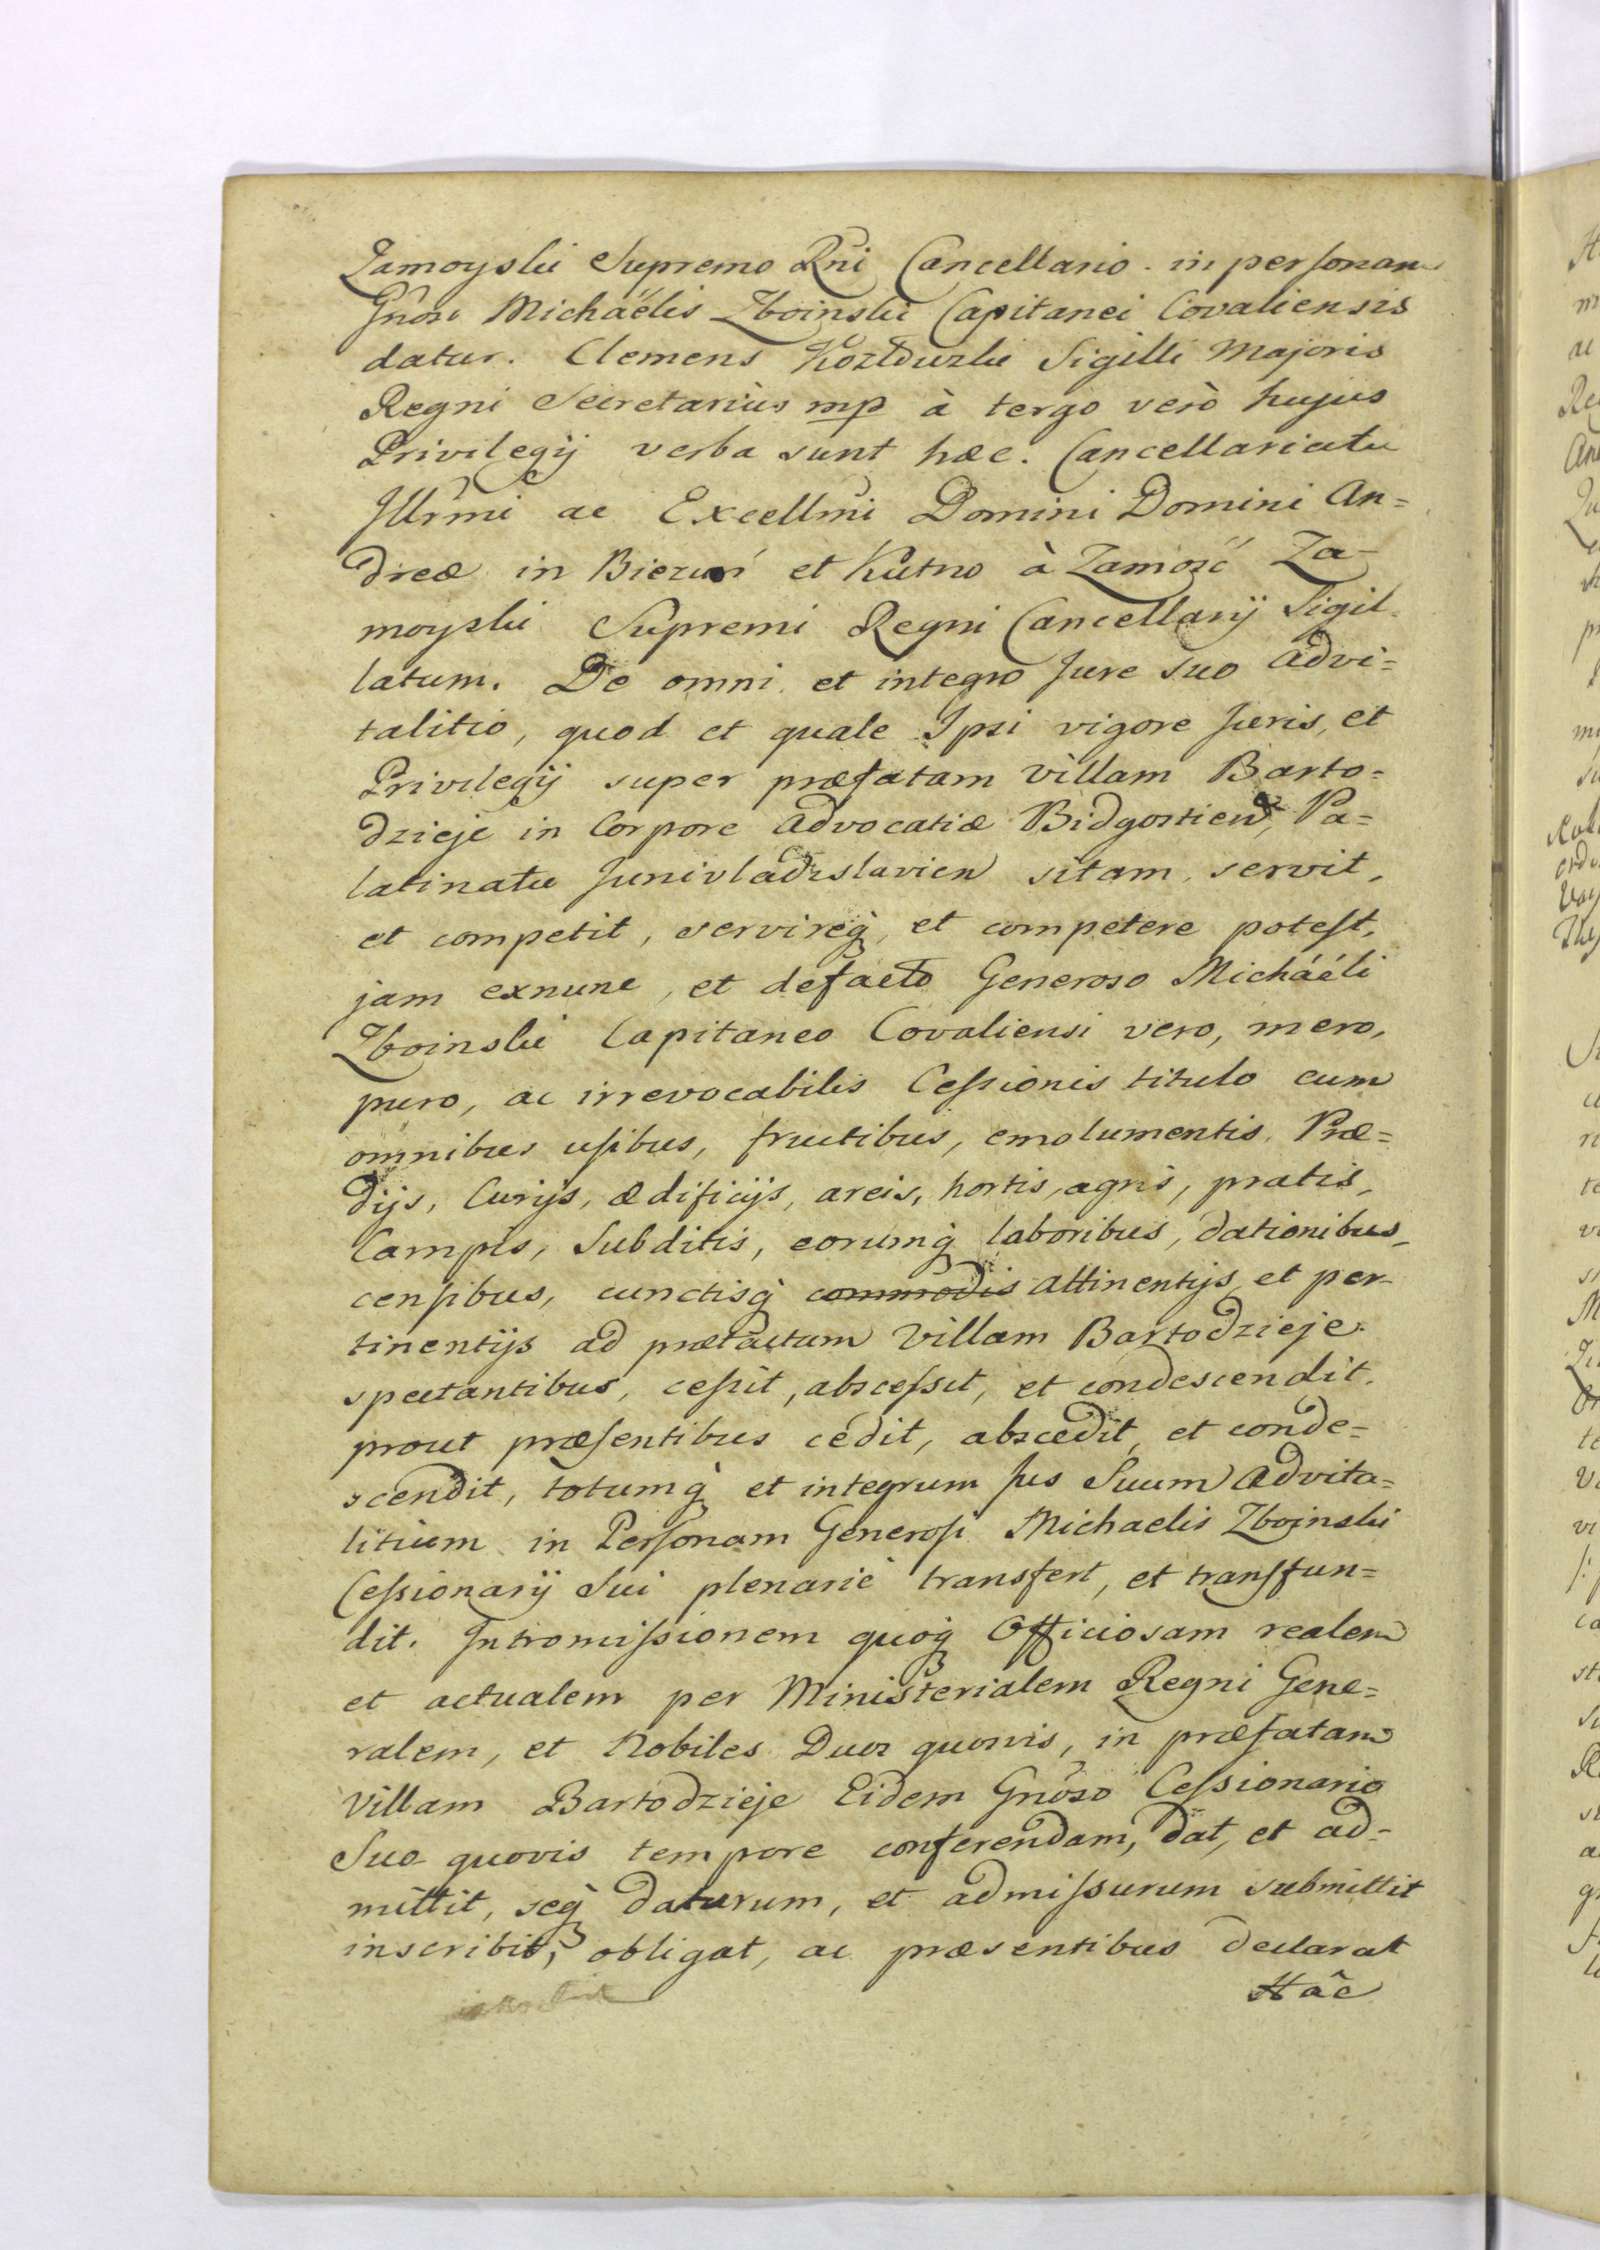 Zamoyski Supremo Rńi Cancellario. in personam
Gńosi Micháélis Zboinski Capitanei Covaliensis
datur. Clemens Kozłduzki Sigilli Majoris
Regni Secretarius mp à tergo verò hujus
Privilegij verba sunt hæc. Cancellariatu
Jllrmi ac Excellmi Domini Domini An=
dreæ in Biezuń et Kutno à Zamość Za-
moyski Supremi Regni Cancellarij Sigil-
latum. De omni et integro Jure suo advi=
talitio, quod et quale Ipsi vigore Juris, et
Privilegij super præfatam villam Barto=
dzieje in Corpore advocatiæ Bidgostien, Pa=
latinatu Junivladislavien sitam, servit,
et competit, servireq̀, et competere potest,
jam exnunc, et defacto Generoso Micháéli
Zboinski Capitaneo Covaliensi vero, mero,
puro, ac irrevocabilis Cessionis titulo cum
omnibus usibus, fructibus, emolumentis, Præ=
dijs, Curijs, ædificijs, areis, hortis, agris, pratis,
Campis, Subditis, eorumq̀ laboribus, dationibus,
censibus, cunctisq̀ commodis attinentijs, et per-
tinentijs ad prætactam Villam Bartodzieje
spectantibus, cessit, abscessit, et condescendit.
prout præsentibus cedit, abscedit, et conde=
scendit, totumq̀ et integrum Jus Suum advita=
litium in Personam Generosi Michaelis Zboinski
Cessionarij Sui plenariè transfert, et transfun=
dit. Intromissionem quoq̀ Officiosam realem
et actualem per Ministerialem Regni Gene=
ralem, et Nobiles Duos quosvis, in præfatam
Villam Bartodzieje Eidem Gńoso Cessionario
Suo quovis tempore conferendam, dat, et ad-
mittit, seq̀ daturum, et admissurum submittit
inscribit, obligat, ac præsentibus declarat
Hâc